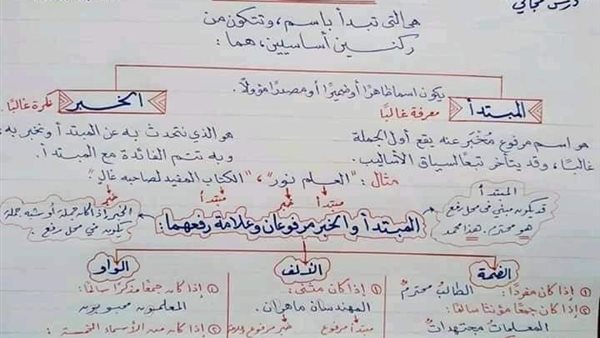 درس مجاني
هي التي تبدأ باسم، وتتكون من
ركنين أساسيين، هما:
يكون اسمًا ظاهرًا أو ضميرًا أو مصدرًا مؤولًا.
المبتدأ
معرفة غالبًا
الخبر
نكرة غالبًا.
هو اسم مرفوع مُخْبَر عنه يقع أول الجملة
غالبًا، وقد يتأخر تبعًا لسياق الأساليب.
هو الذي نتحدث به عن المبتدأ ونخبر به،
وبه تتم الفائدة مع المبتدأ.
مثال: "العلم نور"، "الكتاب المفيد لصاحبه غالٍ"
مبتدأ
خبر
مبتدأ
خبر
المبتدأ
قد يكون مبني في محل رفع
هو محترم. هذا محمد
المبتدأ والخبر مرفوعان وعلامة رفعهما:
الخبر إذا كان جملة أو شبه جملة
يكون في محل رفع.
الضمة
① إذا كان مفردًا: الطالبُ محترمٌ
② إذا كان جمعًا مؤنثًا سالمًا:
المعلماتُ مجتهداتٌ
الألف
① إذا كان مثنى:
المهندسان ماهران.
مبتدأ مرفوع
خبر مرفوع
الواو
① إذا كان جمعًا مذكرًا سالمًا:
المعلمون محبوبون
② إذا كان من الأسماء الخمسة: